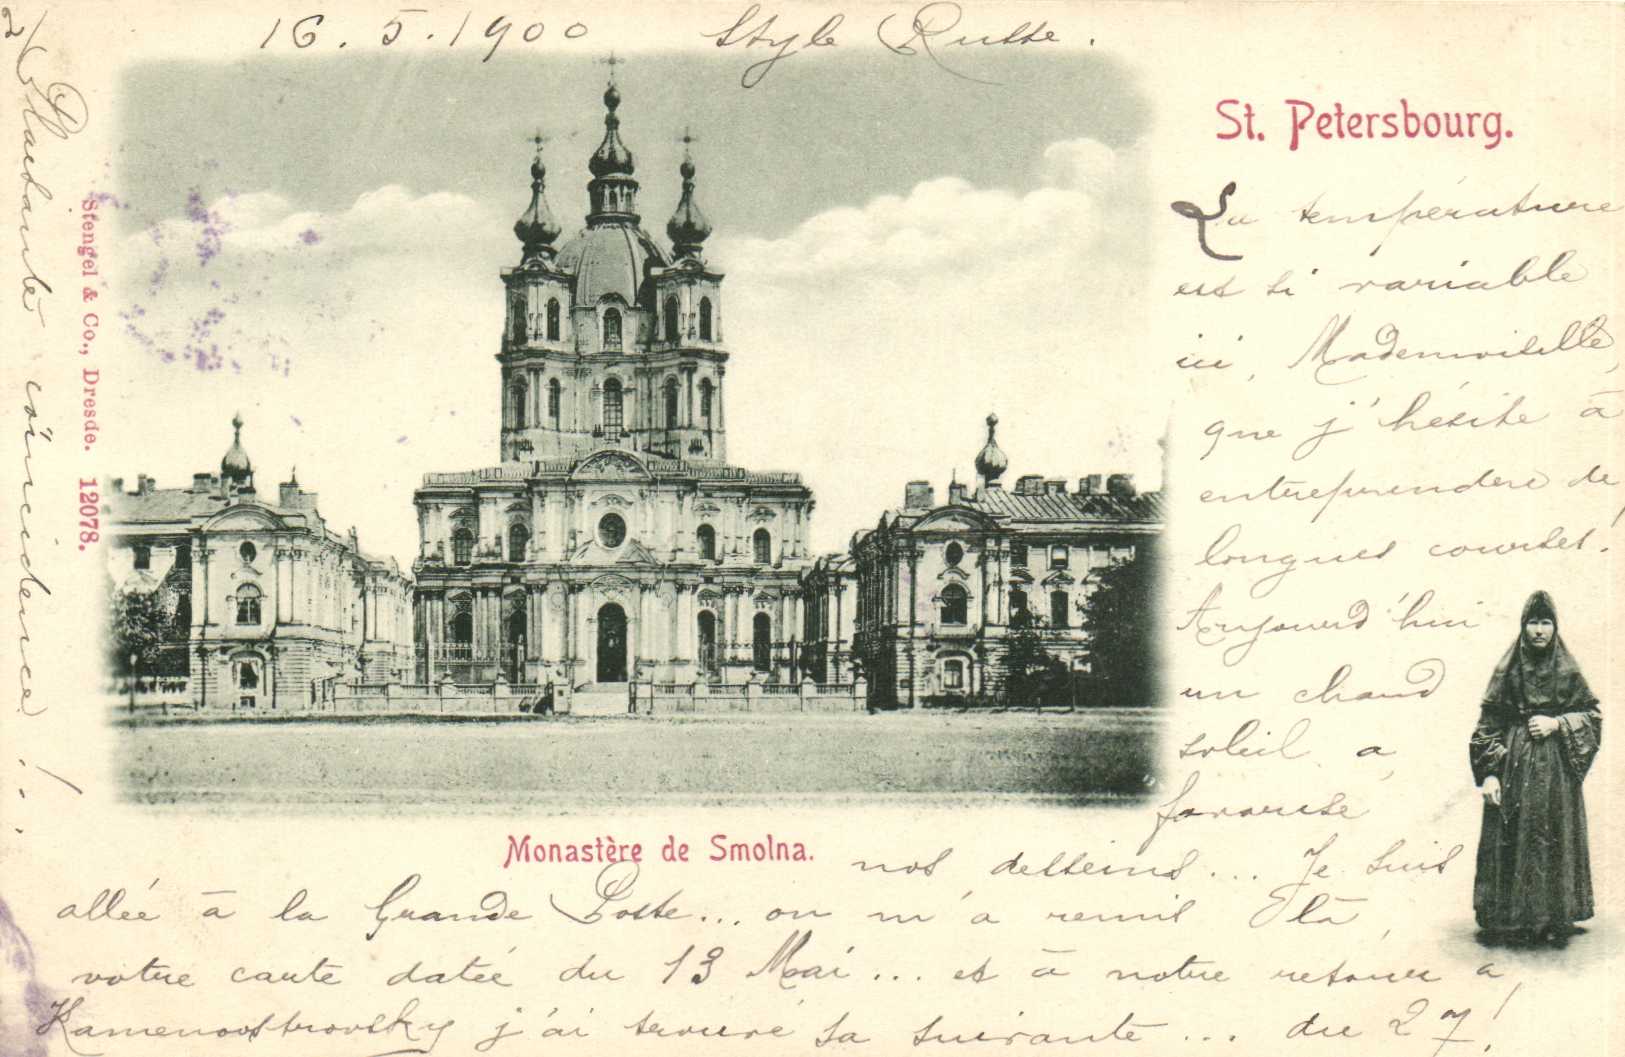 16.5.1900 Style Russe.
St. Petersbourg.
La température
est si variable
ici, Mademoiselle,
que j'hésite à
entreprendre de
longues courses.
Aujourd'hui
un chaud
soleil a
favorisé
Monastère de Smolna.
nos desseins... Je suis
allée à la Grande Poste... on m'a remis là,
votre carte datée du 13 Mai... et à notre retour a
Kamenoostrovsky j'ai trouvé sa suivante... du 27!
coïncidence!..
Stengel & Co., Dresde. 12078.